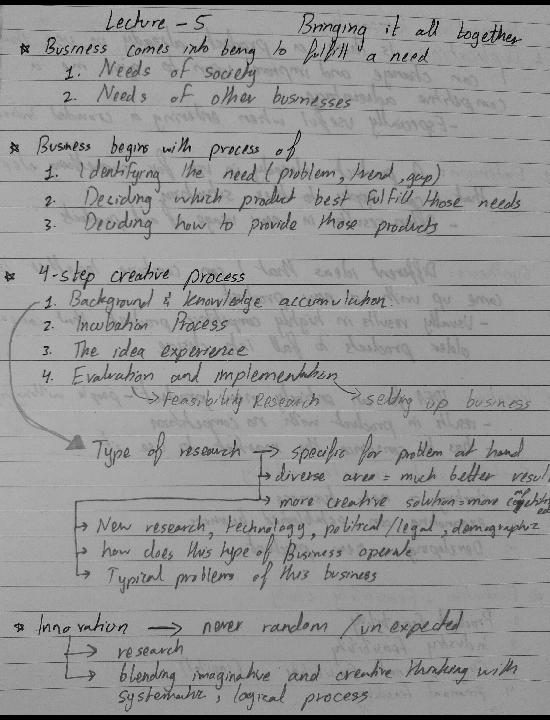 Lecture - 5 Bringing it all together
* Business comes into being to fulfill a need
1. Needs of society
2. Needs of other businesses
* Business begins with process of
1. Identifying the need (problem, trend, gap)
2. Deciding which product best fulfill those needs
3. Deciding how to provide those products
* 4-step creative process
1. Background & knowledge accumulation
2. Incubation Process
3. The idea experience
4. Evaluation and implementation
→ Feasibility Research → setting up business
Type of research → specific for problem at hand
→ diverse area = much better result
→ more creative solution = more
→ New research, technology, political/legal, demographic
→ how does this type of Business operate
→ Typical problems of this business
* Innovation → never random / unexpected
→ research
→ blending imaginative and creative thinking with
systematic, logical process